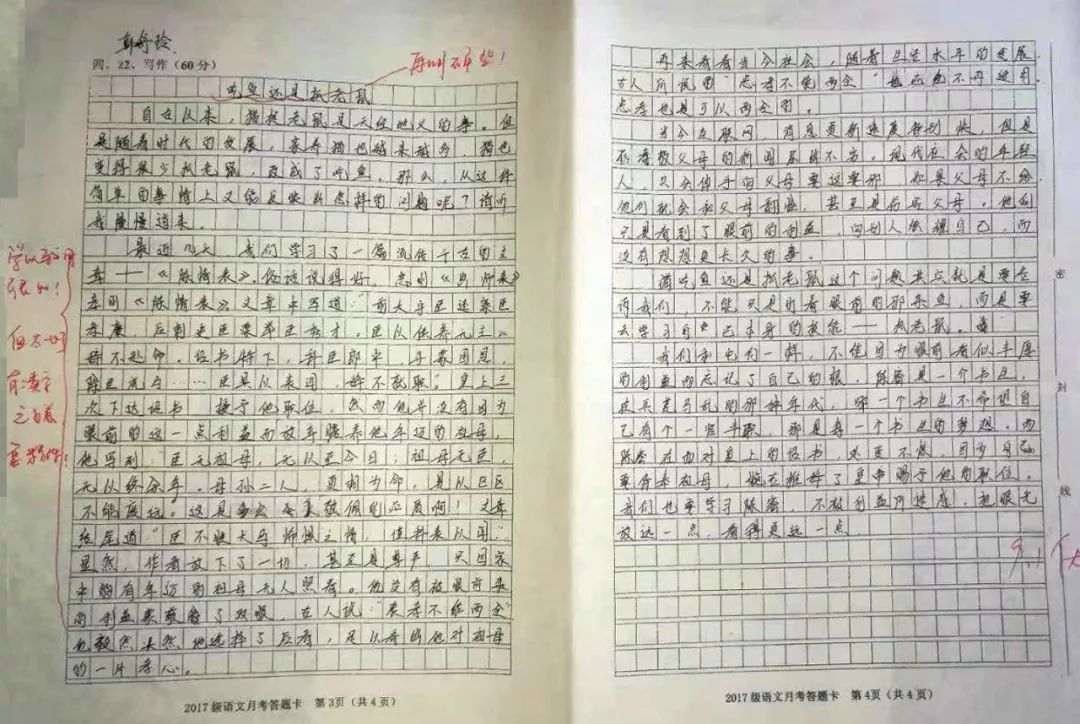 四、22、写作（60分）
吃鱼还是抓老鼠
自古以来，猫捉老鼠是天经地义的事。但
是随着时代的发展，家养猫也越来越多，猫也
变得很少抓老鼠，改成了吃鱼。那么，从这件
简单的事情上又能反映出怎样的问题呢？请听
我慢慢道来。
最近几天，我们学习了一篇流传千古的文
章——《陈情表》。俗话说得好，忠则《出师表》
孝则《陈情表》。文章中写道“前太守臣逵察臣
孝廉，后刺史臣荣举臣秀才。臣以供养无主，
辞不赴命。诏书特下，拜臣郎中，寻蒙国恩，
除臣洗马……臣具以表闻，辞不就职。”皇上三
次下达诏书，授予他职位，然而他并没有因为
眼前的这一点利益而放弃赡养他年迈的祖母，
他写到：臣无祖母，无以至今日；祖母无臣，
无以终余年。母孙二人，更相为命，是以区区
不能废远。这是多么令人敬佩的品质啊！文章
结尾道“臣不胜犬马怖惧之情，谨拜表以闻。”
显然，作者放下了一切，甚至是尊严，只因家
中尚有年迈的祖母无人照看。他没有被眼前
的利益蒙蔽了双眼，古人说“忠孝不能两全”
他毅然决然地选择了后者，足以看出他对祖母
的一片孝心。
2017级语文月考答题卡 第3页（共4页）
再来看看当今社会，随着生活水平的发展
古人所说的“忠孝不能两全”也应该不再适用
忠孝也是可以两全的。
当今互联网，消息更新速度特别快，但是
不孝敬父母的新闻屡出不穷。现代社会的年轻
人，只会伸手向父母要这要那，如果父母不给
他们就会和父母翻脸，甚至是伤害父母。他们
只是看到了眼前的利益，向别人炫耀自己，而
没有想想更长久的事。
猫吃鱼还是抓老鼠这个问题其实就是要告
诉我们，不能只是盯着眼前的那条鱼，而是要
去学习自己本身的技能——抓老鼠。
我们和它们一样，不能因为眼前看似丰厚
的利益而忘记了自己的根。陈密是一个书生，
在兵荒马乱的那种年代，哪一个书生不希望自
己有个一官半职，那是每一个书生的梦想。而
陈密在面对皇上的诏书，处变不惊，因为自己
要侍奉祖母，婉言推辞了皇帝赐予他的职位。
我们也要学习陈密，不被利益所迷惑，把眼光
放远一点，看得更远一点。
2017级语文月考答题卡 第4页（共4页）
密
封
线